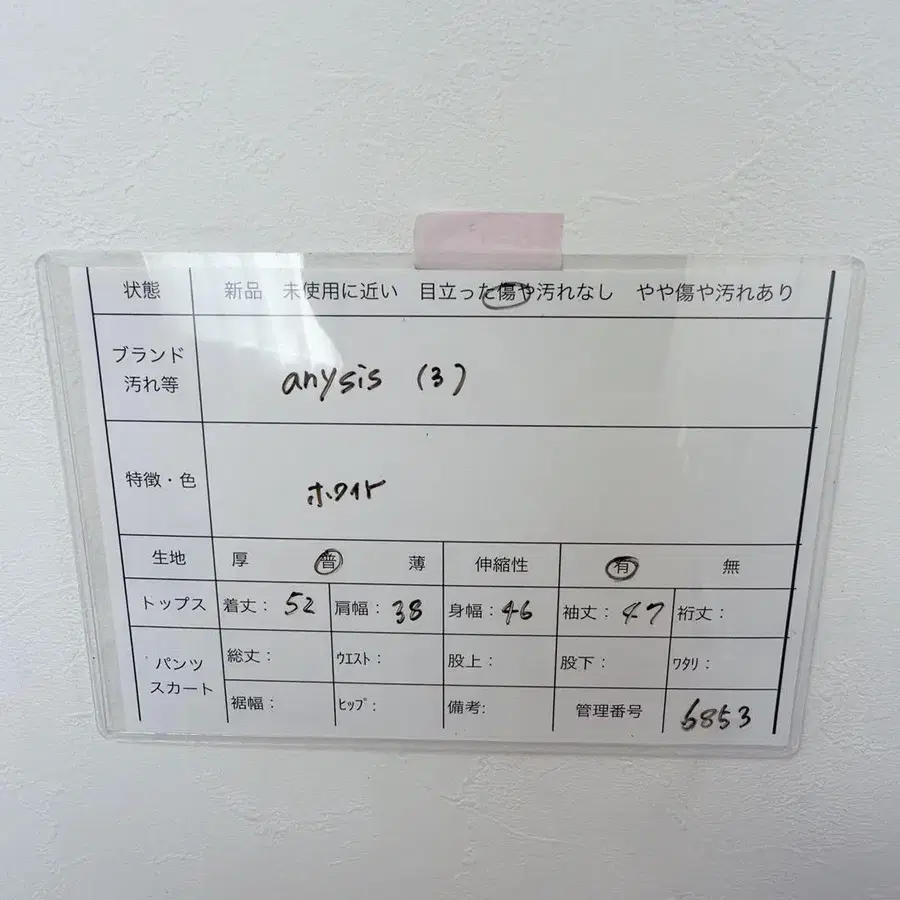 状態 新品 未使用に近い 目立った傷や汚れなし やや傷や汚れあり
ブランド
汚れ等 anysis (3)
特徴・色 ホワイト
生地 厚 普 薄 伸縮性 有 無
トップス 着丈: 52 肩幅: 38 身幅: 46 袖丈: 47 裄丈:
パンツ
スカート
総丈: ウエスト: 股上: 股下: ワタリ:
裾幅: ヒップ: 備考: 管理番号 6853